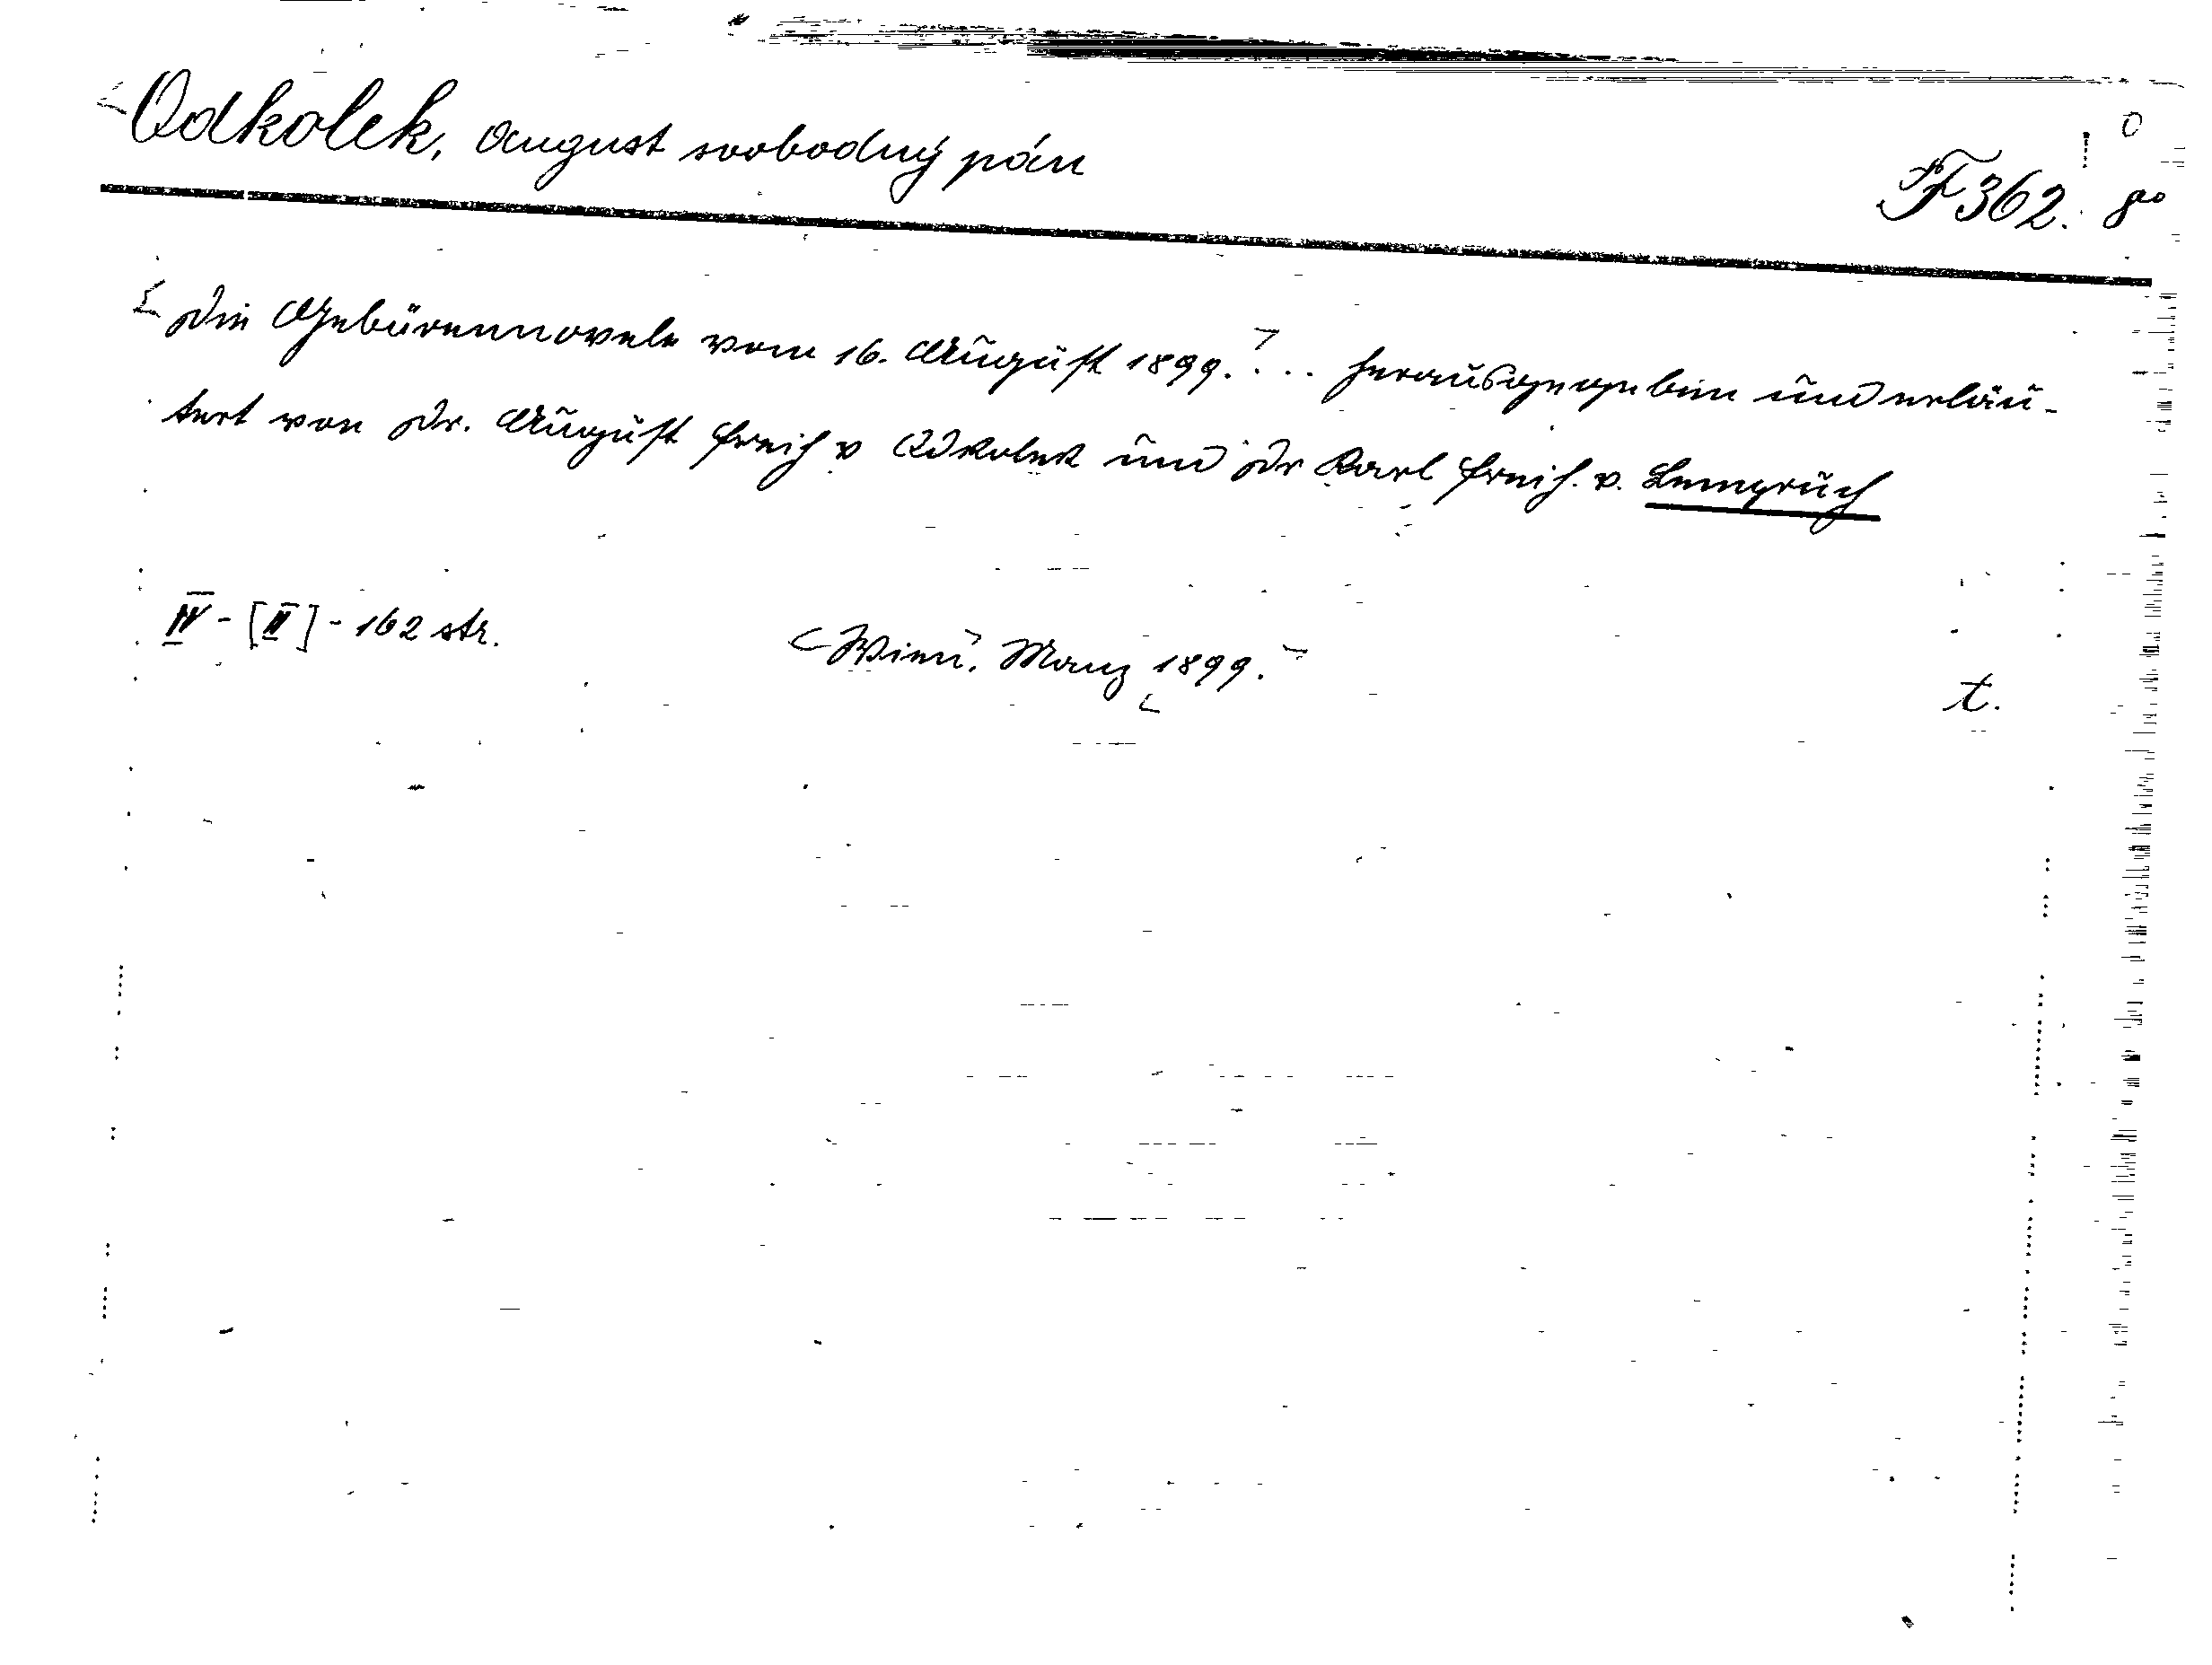 Odkolek, August svobodný pán
F 362. 8°
Die Gebürennovele vom 16. August 1899. ... herausgegeben und erläu-
tert von Dr. August Freih v Odkolek und Dr Karl Freih. v. Lempruch
IV - [II] - 162 str.
Wien, Manz 1899.
t.